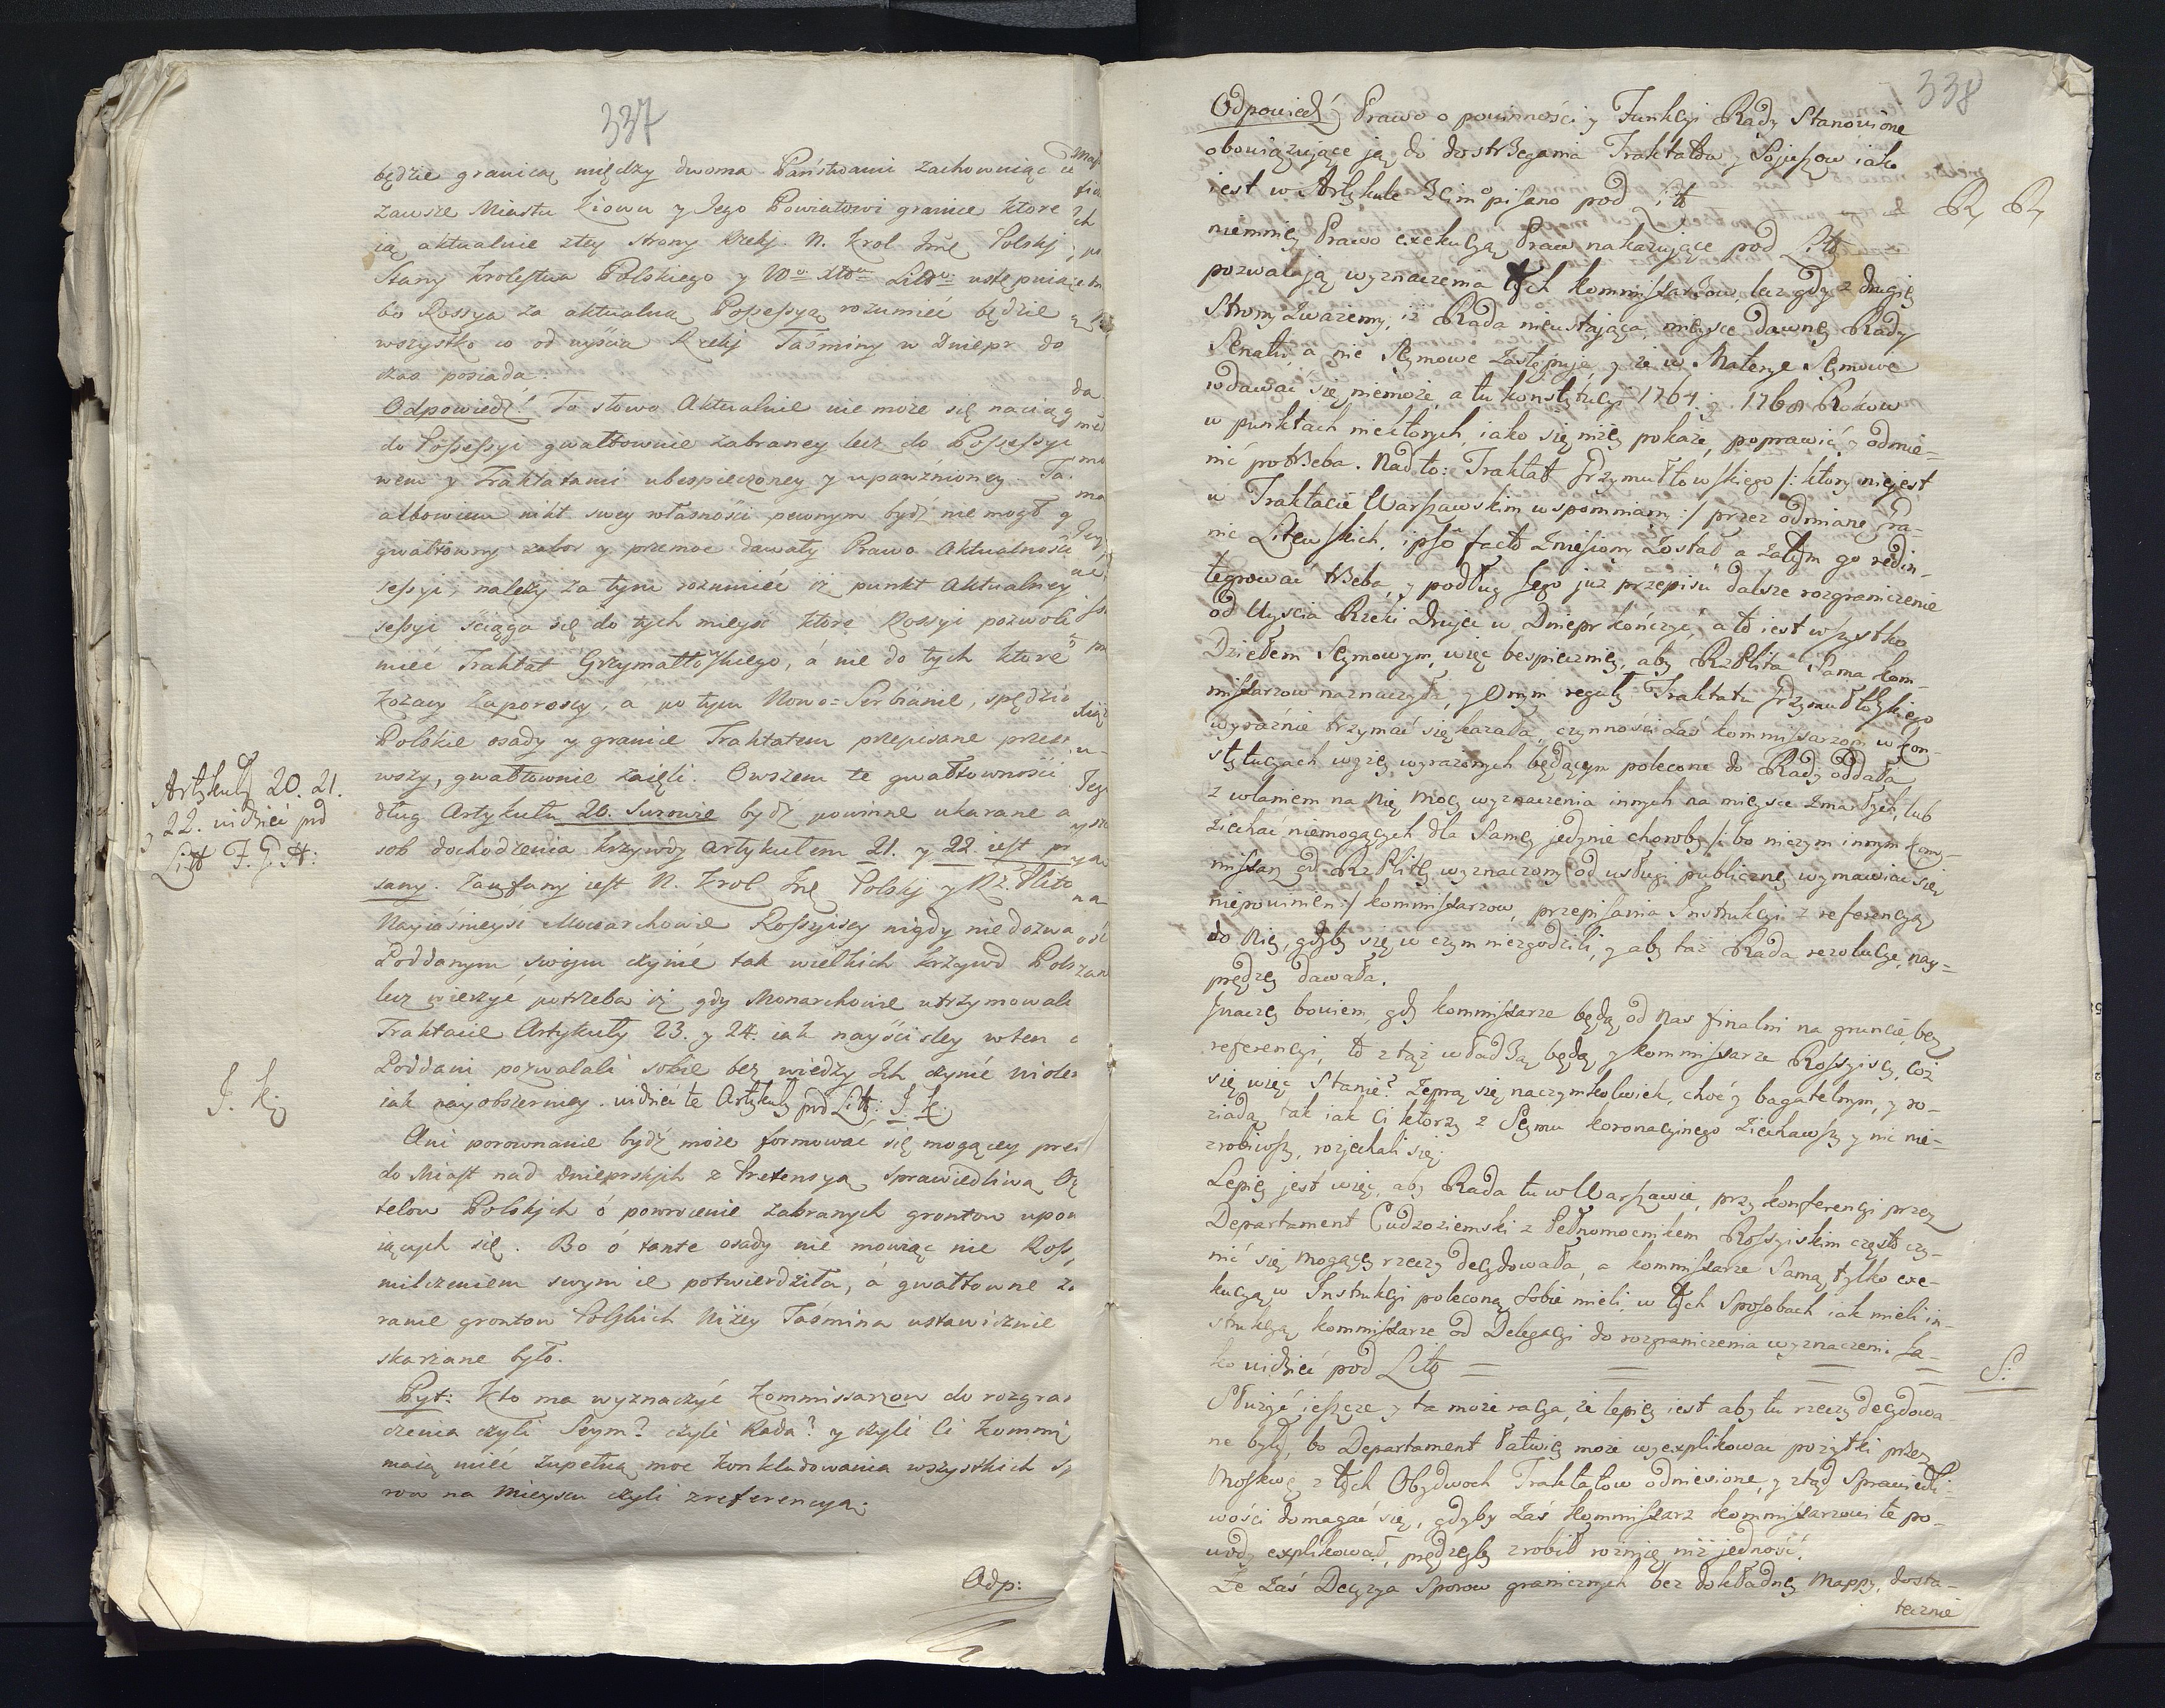 337
będzie granicą między dwoma Państwami zachowuiąc
zawsze Miastu Kiowu y Jego Powiatowi granice ktore
ią aktualnie ztey strony Rzeki. N. Krol Jmć Polski
Stany Krolestwa Polskiego y Wo Xtwa Littgo ustępuią
bo Rossya za aktualną Possessyą rozumieć będzie
wszystko co od uyścia Rzeki Taśminy w Dniepr do
czas posiada.
Odpowiedź! To słowo Aktualnie nie może się naciąg
do Possessyi gwałtownie zabraney lecz do Possessyi
wem y Traktatami ubespieczoney y upoważnioney. Ta
albowiem nikt swey własności pewnym bydź nie mogł g
gwałtowny zabor y przemoc dawały Prawo Aktualności
sessyi, należy za tym rozumieć iż punkt Aktualney
sessyi ściąga się do tych mieysc ktore Rossyi pozwoli
mieć Traktat Grzymałtowskiego, á nie do tych ktore
Kozacy Zaporoscy, a po tym Nowo=Serbianie, spędzi
Polskie osady y granice Traktatem przepisane prze
wszy, gwałtownie zaięli. Owszem te gwałtowności
dług Artykułu 20. Surowie bydź powinne ukarane a
sob dochodzenia krzywdy artykułem 21. y 22. iest pr
sany. Zaufany iest N. Krol Jmć Polski y Rz. Plito
Nayiasnieysi Monarchowie Rossyiscy nigdy niedozwa
Poddanym swoim czynić tak wielkich krzywd Pols
lecz wierzyć potrzeba iż gdy Monarchowie utrzymowali
Traktacie Artykuły 23. y 24. iak nayściśley w ten
Poddani pozwalali sobie bez wiedzy Ich czynić violen
iak nayobszerniey. vidzieć te Artykuły pod Litt: J. K.
Ani porownanie bydź może formować się mogącey pre
do Miast nad Dnieprskich z Pretensyą Sprawiedliwą Ob
telow Polskich ó powrocenie zabranych grontow upom
iących się. Bo ó tamte osady nie mowiąc nic Ross
milczeniem swym ie potwierdziła, á gwałtowne za
ranie grontow Polskich Niżey Taśmina ustawicznie
skarzane było.
Pyt: Kto ma wyznaczyć Kommissarzow do rozgra
czenia czyli Seym? czyli Rada? y czyli Ci Kommi
maią mieć Zupełną moc Konkludowania wszystkich Sp
row na Mieyscu czyli z referencyą.
Odp:
Artykuły 20. 21.
y 22. vidzieć pod
Litt F. G. H:
J. K.
338
Odpowiedź Prawo o powinności y Funkcyi Rady Stanowione
obowiązujące ją do dostrzegania Traktatow y Sojuszow iako
iest w Artykule 3cim opisano pod Litt
R R
niemniey Prawo exekucyą Praw nakazujące pod Litt
pozwalają wyznaczenia tych Kommissarzow lecz gdy z drugiey
Strony zważemy, iż Rada nieustająca, mieysce dawney Rady
Senatu, a nie Seymowe Zastępuje, y że w Materye Seymowe
wdawać się niemoże, a tu konstytucyi 1764. y 1768 Rokow
w punktach niektorych, iako się niżey pokaże, poprawić y odmie=
nić potrzeba. Nad to: Traktat Grzymułtowskiego /: ktory niejest
w Traktacie Warszawskim wspomniany :/ przez odmianę Gra-
nic Litewskich, ipso facto Zniesiony Został a Zatym go redin-
tegrować trzeba, y podług Jego już przepisu dalsze rozgraniczenie
od Uyscia Rzeki Drujca w Dniepr kończyć, a to iest wszystko
Dziełem Seymowym, więc bespieczniey, aby RzPlita Sama kom-
missarzow naznaczyła, y Onym reguły Traktatu Grzymułtowskiego
wyraźnie trzymać się kazała, czynności Zaś kommissarzom w kon-
stytucyach wyżey wyrażonych będącym polecone do Rady oddała
z wlaniem na Nię Mocy wyznaczenia innych na mieysce Zmarłych, lub
Ziechać niemogących dla Samey jedynie choroby /: bo niczym innym kom-
missarz od RzPlitey wyznaczony od usługi publiczney wymawiać się
niepowinien :/ kommissarzow, przepisania Instrukcyi z referencyą
do Niey, gdyby się w czym niezgodzili, y aby taż Rada rezolucye, nay=
prędzey dawała.
Jnaczey bowiem, gdy kommissarze będą od nas finalni na gruncie, bez
referencyi, to z tąż władzą będą y kommissarze Rossyiscy, coż
się więc Stanie? Zeprą się na czymkolwiek, choć y bagatelnym, y ro-
ziadą tak iak Ci ktorzy z Seymu koronacyinego Ziechawszy y nic nie-
zrobiwszy, rozjechali się.
Lepiey jest więc, aby Rada tu w Warszawie, przy konferencyi przez
Departament Cudzoziemski z Pełnomocnikiem Rossyiskim często czy-
nić się mogącey rzeczy decydowała, a kommissarze Samą tylko exe-
kucyą w Instrukcyi poleconą Sobie mieli, w tych Sposobach iak mieli in-
strukcyą kommissarze od Delegacyi do rozgraniczenia wyznaczeni Ja-
ko vidzieć pod Litt = = = =
S:
Służyć ieszcze y ta może racya, że lepiey iest aby tu rzeczy decydowa
ne były, bo Departament łatwiey może wyexplikować pożytki przez
Moskwę z tych Obydwoch Traktatow odniesione, y ztąd Sprawiedli-
wości domagać się, gdyby Zaś kommissarz kommissarzowi te po-
wody explikował, prędzeyby zrobił roznicę niż jedność.
Że Zaś Decyzya Sporow granicznych bez dokładney Mappy, dosta-
tecznie